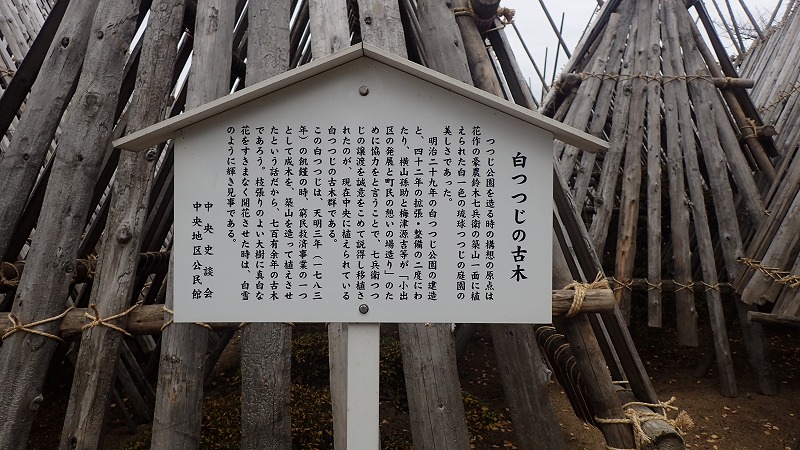 白つつじの古木
つつじ公園を造る時の構想の原点は
花作の豪農鈴木七兵衛の築山一面に植
えられた白一色の琉球つつじの庭園の
美しさであった。
明治二十九年の白つつじ公園の建造
と、四十二年の拡張・整備の二度にわ
たり、横山孫助と梅津源吉等が「小出
区の発展と町民の憩いの場造り」のた
めに協力をと言うことで、七兵衛つつ
じの譲渡を誠意をこめて説得し移植さ
れたのが、現在中央に植えられている
白つつじの古木群である。
この白つつじは、天明三年（一七八三
年）の飢饉の時、窮民救済事業の一つ
として成木を、築山を造って植えさせ
たという話だから、七百有余年の古木
であろう。枝張りのよい大樹に真白な
花をすきまなく開花させた時は、白雪
のように輝き見事である。
中央史談会
中央地区公民館